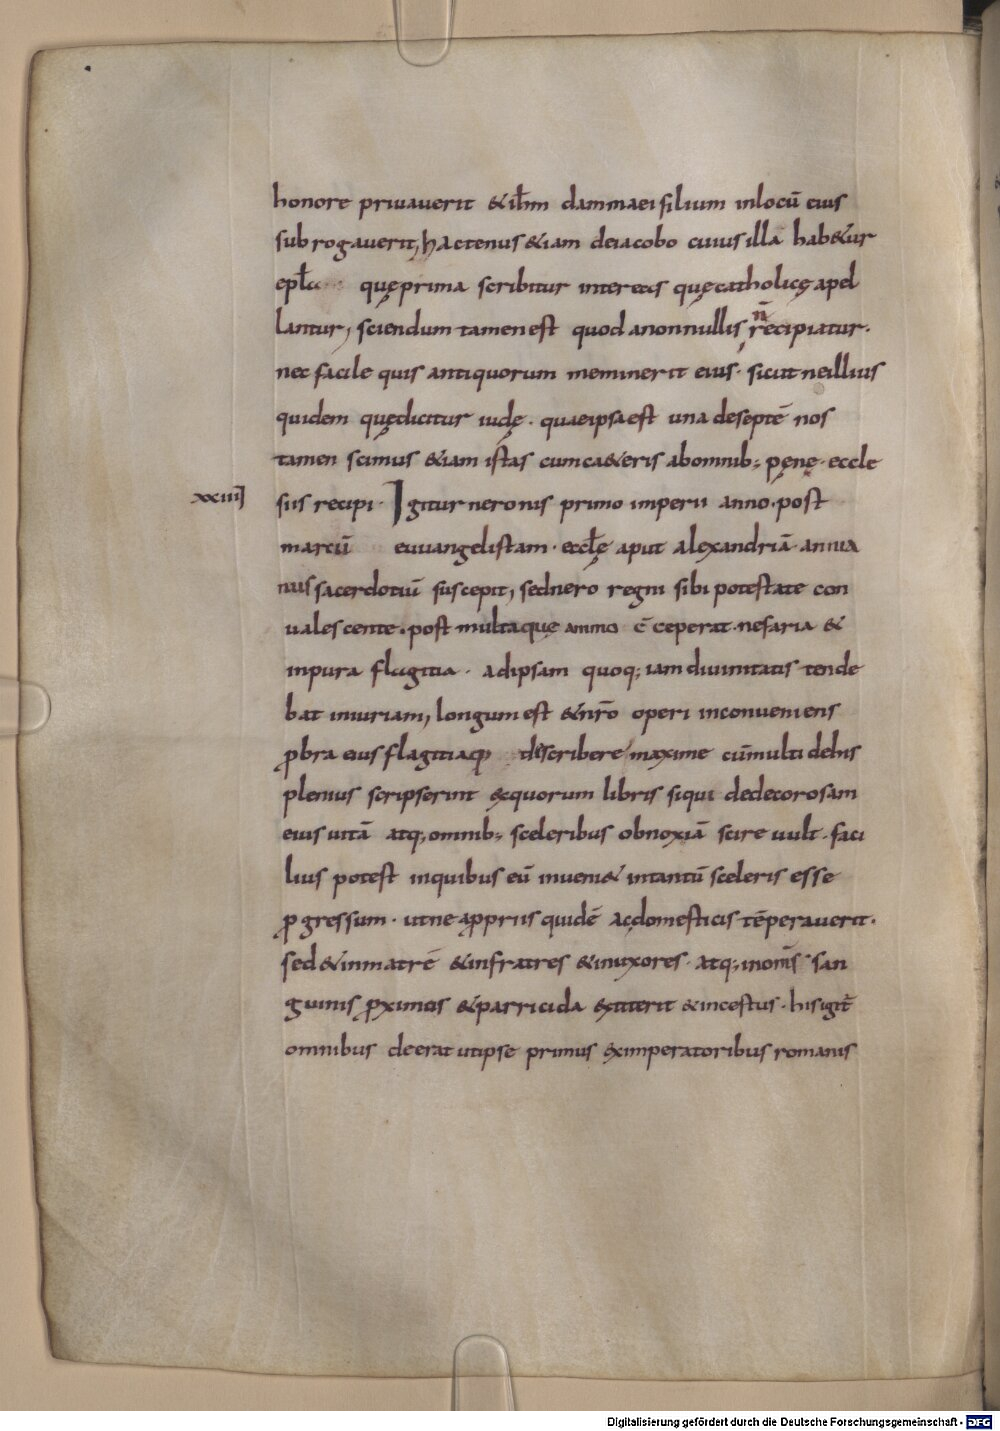 honore priuauerit & ih̄m dammaei filium inlocū eius
subrogauerit, hactenus &iam deiacobo cuius illa hab&ur
epła quęprima scribitur interetas quęcatholicę apel
lantur, sciendum tamen est quod anonnullis n̄ recipiatur.
nec facile quis antiquorum meminerit eius. sicut neillius
quidem quędicitur iudę. quaeipsa est una deseptē nos
tamen scimus &iam istas cumca&eris abomnib; pęnę. eccle
xxiiii siis recipi. Igitur neronis primo imperii anno. post
marcū euuangelistam. eccłę aput alexandriā annia
nus sacerdotiū suscepit, sednero regni sibi potestate con
ualescente. post multaque animo c̄ceperat. nefaria &
inpura flagitia. adipsam quoq; iam diuinitatis tende
bat iniuriam, longum est &nr̄o operi inconueniens
ꝓbra eius flagitiaq; describere maxime cū multi dehis
plenius scripserint exquorum libris siqui dedecorosam
eius uitā atq; omnib; sceleribus obnoxiā scire uult. faci
lius potest inquibus eū inueni& intantū sceleris esse
ꝓgressum. utne aꝓpriis quidē acdomesticis tēperauerit.
sed &inmatrē &infratres &inuxores. atq; inom̄s san
guinis ꝓximos &parricida extiterit &incestus. hisigit̄
omnibus deerat utipse primus eximperatoribus romanis
Digitalisierung gefördert durch die Deutsche Forschungsgemeinschaft - DFG